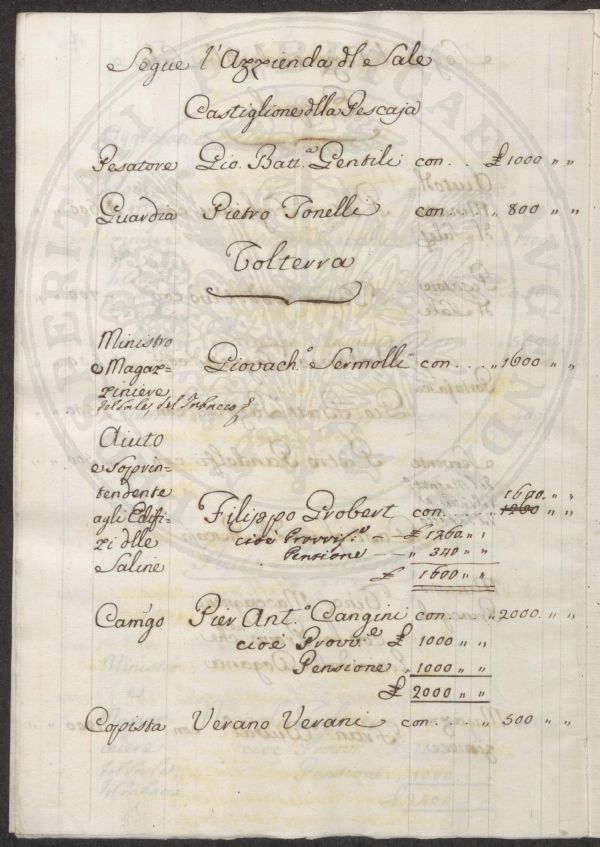 Segue l'Azzienda dl Sale
Castiglione dlla Pescaja
Pesatore Gio. Batt.a Gentili con . . . £ 1000 " "
Guardia Pietro Tonelli con . . . " 800 " "
Volterra
Ministro
e Magaz-
ziniere Giovach.o Sermolli con . . . " 1600 " "
del Sale, del Tabacco
Aiuto
e Soprin-
tendente
agli Edifi-
zi dlle
Saline
Filippo Grobert con . . . 1600. " "
1260 " "
cioè Provvis.e — £ 1260 " "
Pensione — " 340 " "
£ 1600 " "
Camgo Pier Ant.o Cangini con . . . " 2000 " "
cioè Provv.e £ 1000 " "
Pensione " 1000 " "
£ 2000 " "
Copista Verano Verani con . . . " 500 " "